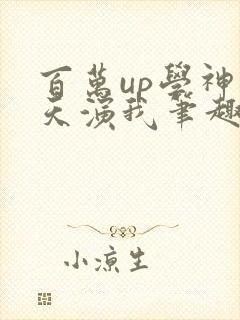 百萬up學神
天演我筆趣
小涼生